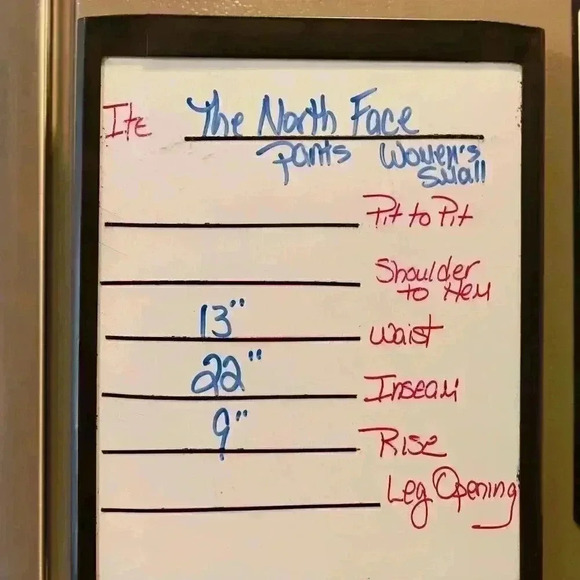 Ite The North Face
Pants Women's
Small
Pit to Pit
Shoulder
to Hem
13" Waist
22" Inseam
9" Rise
Leg Opening